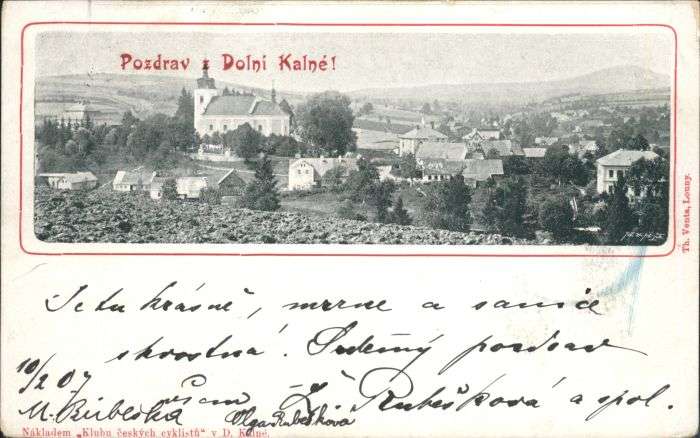 Pozdrav z Dolní Kalné!
Th. Venta, Louny.
Je tu krásně, mrzne a sanice
skvostná! Srdečný pozdrav
10/2 07 všem Ž. Rubešková a spol.
M. Olga Rubešková
Nákladem „Klubu českých cyklistů“ v D. Kalné.